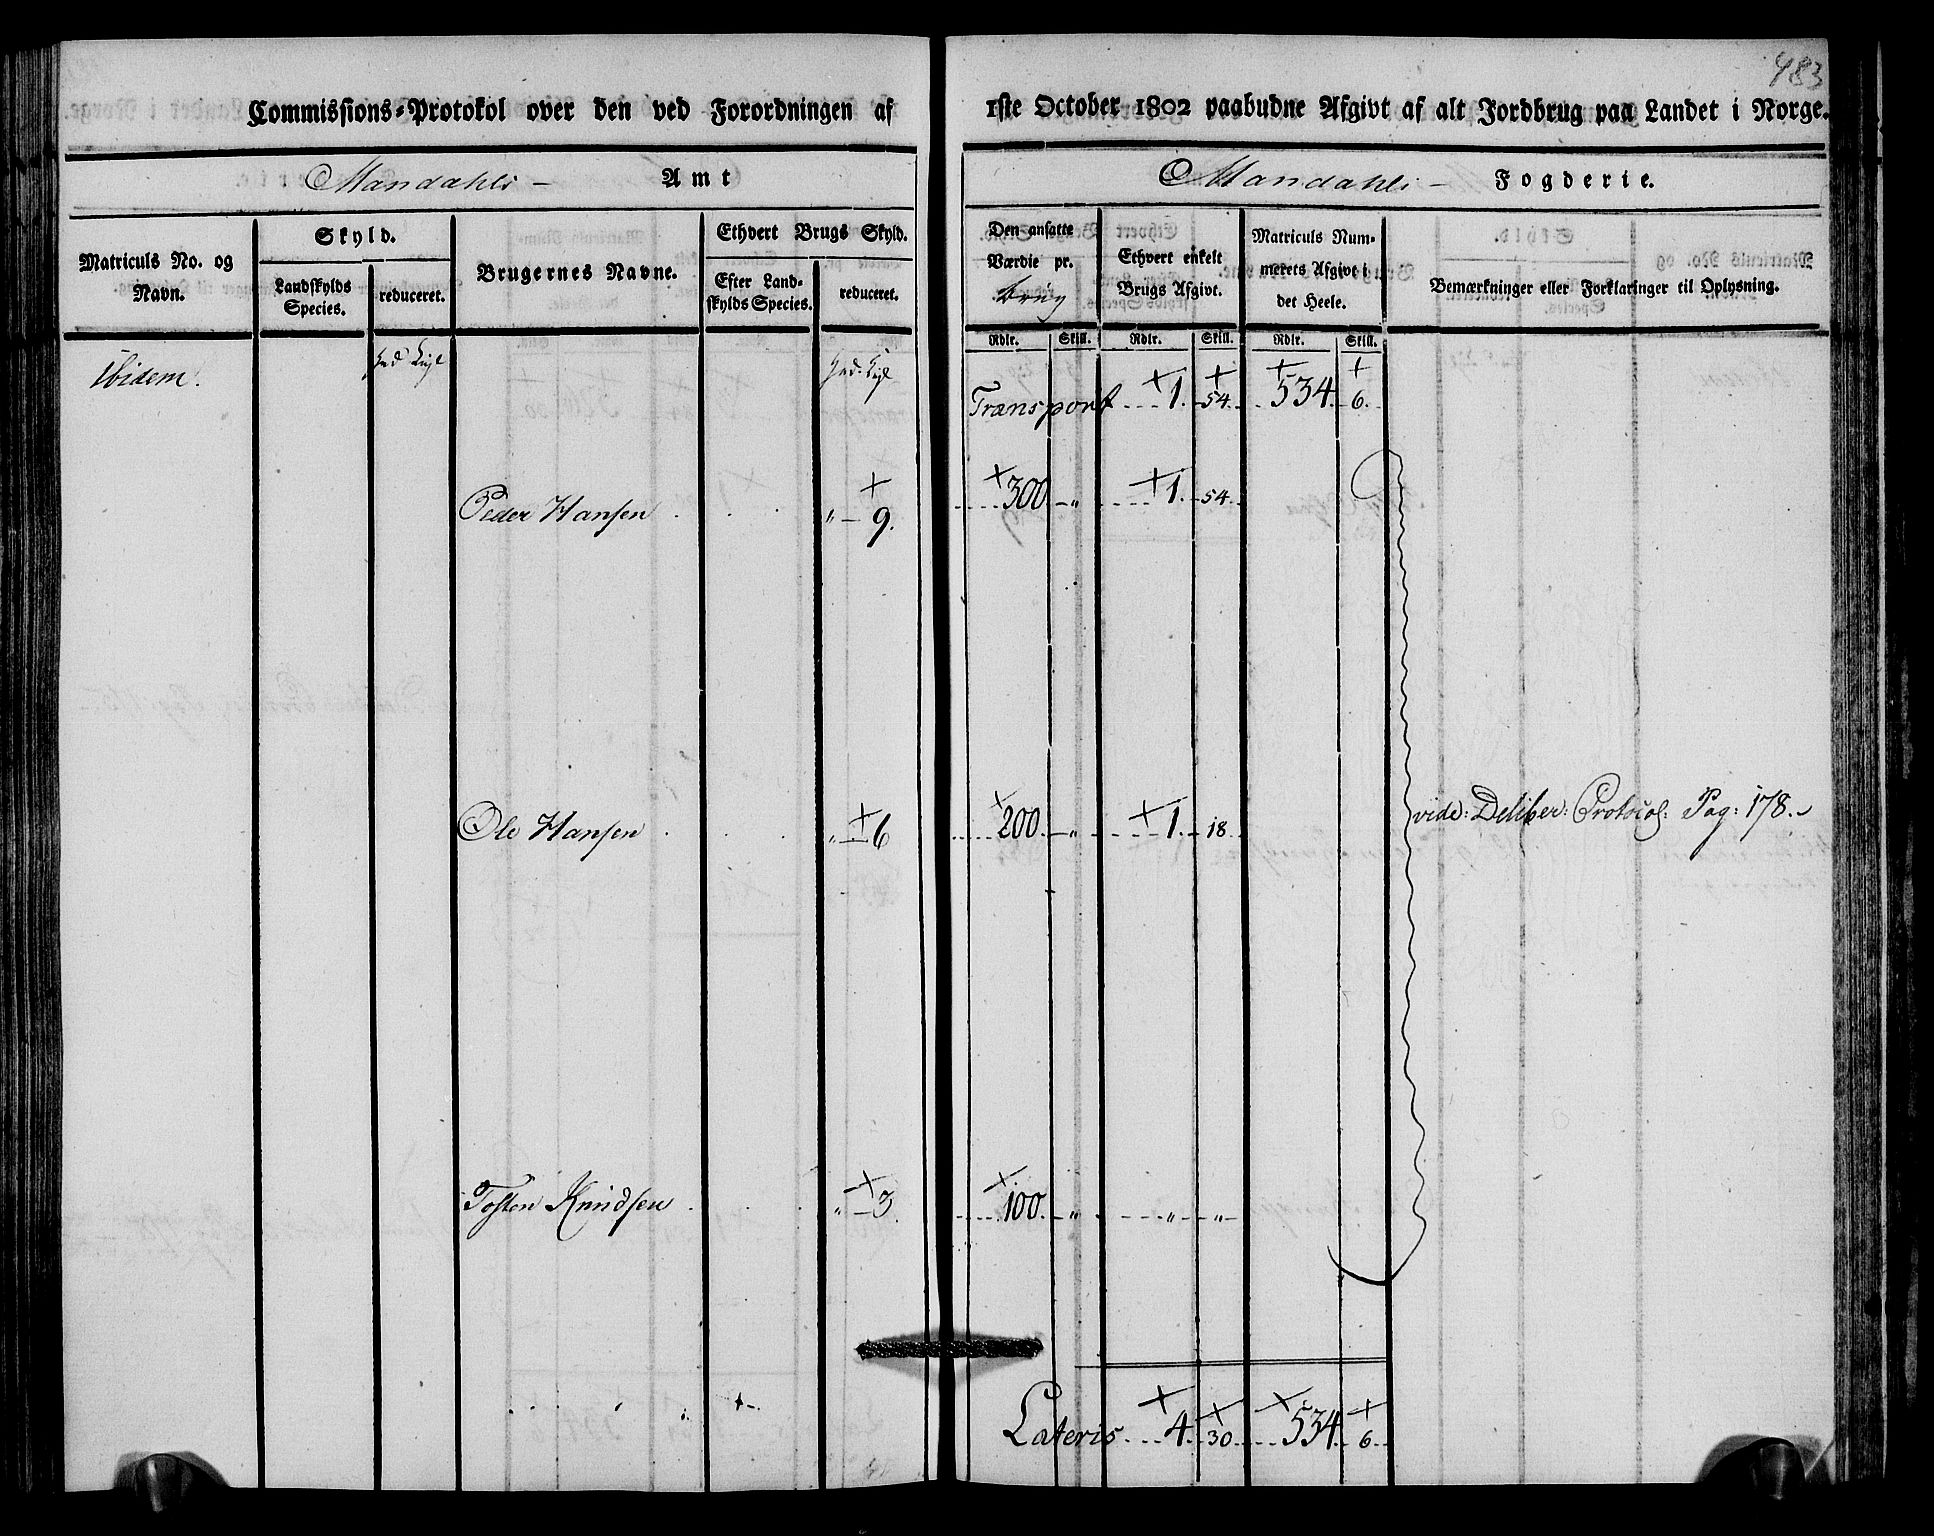 483
Commissions-Protokol over den ved Forordningen af 1ste October 1802 paabudne Afgivt af alt Jordbrug paa Landet i Norge.
Mandahls - Amt
Mandahls - Fogderie.
Matriculs No. og Navn.
Skyld.
Landskylds Species.
reduceret.
Brugernes Navne.
Ethvert Brugs Skyld.
Efter Landskylds Species.
reduceret.
Den ansatte Værdie pr. brug
Ethvert enkelt Brugs Afgivt.
Matriculs Nummerets Afgivt i det Heele.
Bemærkninger eller Forklaringer til Oplysning.
Rdlr. Skill. Rdlr. Skill. Rdlr. Skill.
Ibidem.
Transport 1. 54. 534. 6.
Peder Hansen " 9. 300 " 1. 54.
Ole Hansen " 6 200. " 1. 18.
vide: Deliber: Protocol: Pag: 178.
Tosten Knudsen " 3. 100. " " "
Lateris 4. 30 534. 6